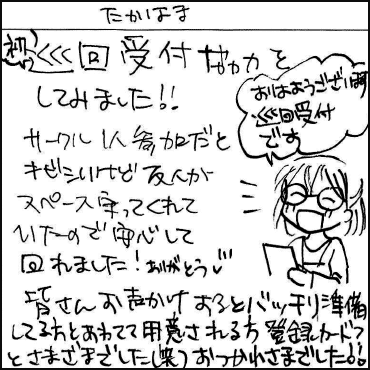 たかはま
初巛回受付協力を
してみました!!
サークル1人参加だと
キビシいけど友人が
スペース守ってくれて
いたので安心して
回れました!ありがとう
おはようございます
巡回受付
です
皆さんお声かけするとバッチリ準備
してる方とあわてて用意される方登録カード
とさまざまでした(笑)おつかれさまでした!!